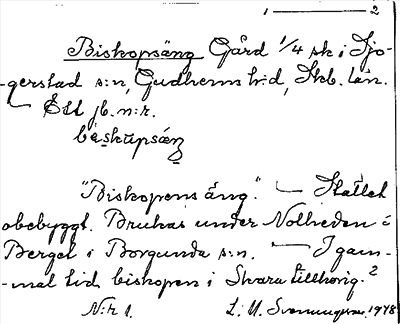 1 — 2
Biskopsäng Gård 1/4 sk i Sjo-
-gerstad s:n, Gudhems h:d, Skb. län.
— Ett jb. n:r.
"Biskopens äng." — Stället
obebyggt. Brukas under Nolheden ä
Berget i Borgunda s:n. — I gam-
-mal tid biskopen i Skara tillhörig.?
N:r 1. L. M. 1918